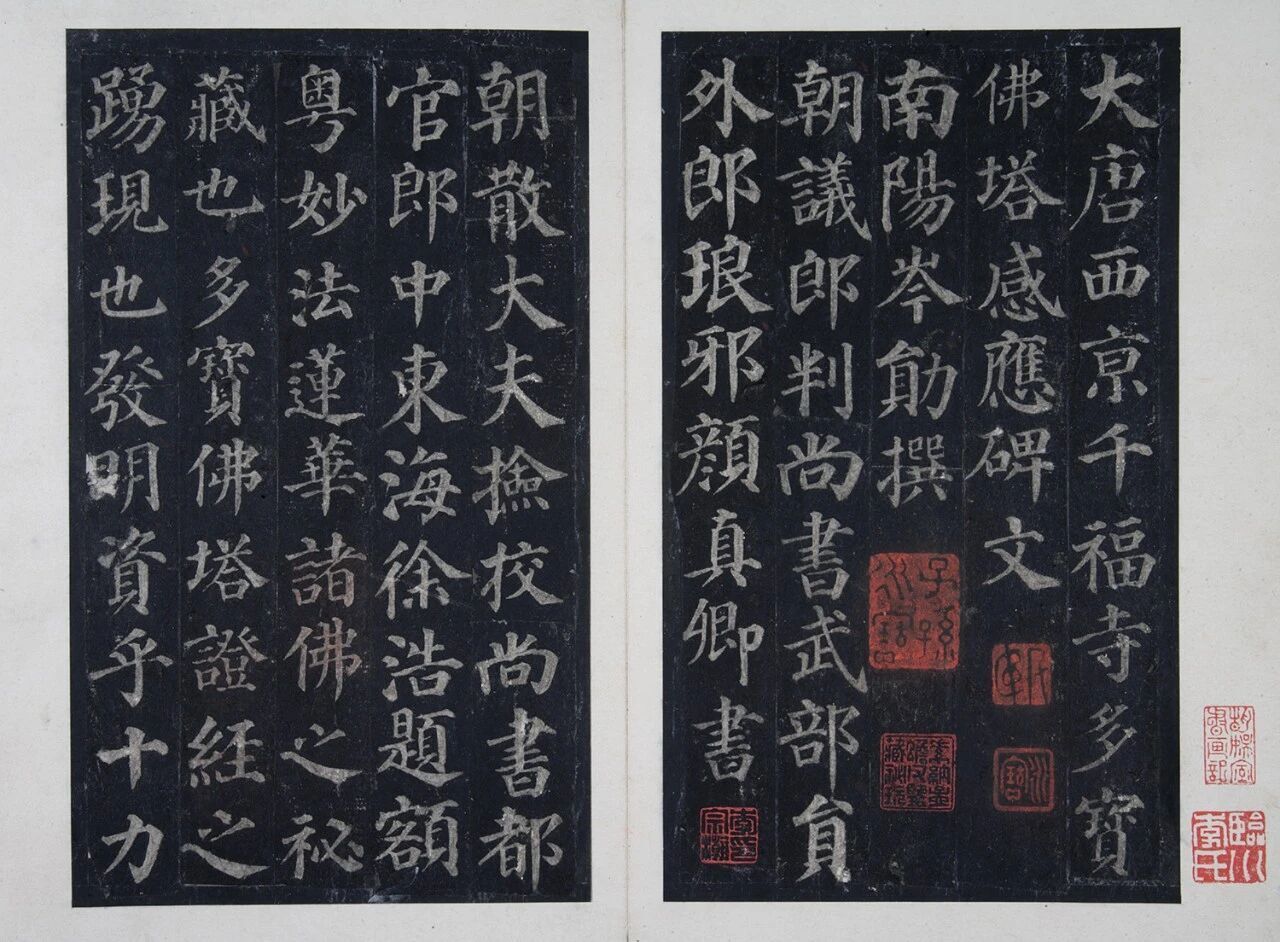 大唐西亰千福寺多寶
佛塔感應碑文
南陽岑勛撰
朝議郎判尚書武部員
外郎琅邪顏真卿書
朝散大夫撿校尚書都
官郎中東海徐浩題額
粵妙法蓮華諸佛之祕
藏也多寶佛塔證経之
踴現也發明資乎十力
臨川李氏